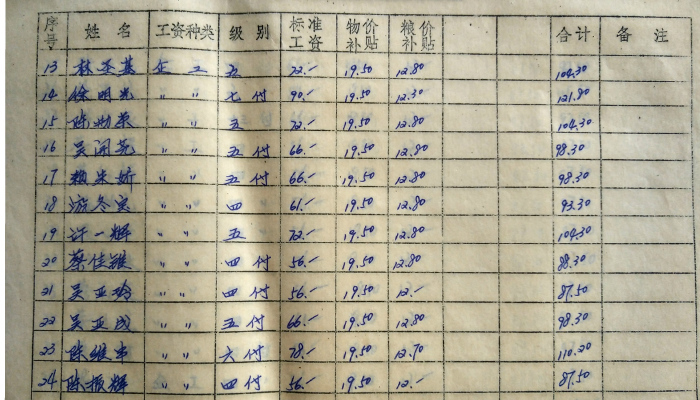 序号 姓名 工资种类 级别 标准工资 物价补贴 粮价补贴 合计 备注
13 林圣基 企工 五 72.- 19.50 12.80 104.30
14 徐明光 〃 〃 七付 90.- 19.50 12.30 121.80
15 陈 荣 〃 〃 五 72.- 19.50 12.80 104.30
16 吴开 〃 〃 五付 66.- 19.50 12.80 98.30
17 赖朱娇 〃 〃 五付 66.- 19.50 12.80 98.30
18 游冬 〃 〃 四 61.- 19.50 12.80 93.30
19 许一辉 〃 〃 五 72.- 19.50 12.80 104.30
20 蔡佳 〃 〃 四付 56.- 19.50 12.80 88.30
21 吴亚玲 〃 〃 四付 56.- 19.50 12.- 87.50
22 吴亚成 〃 〃 五付 66.- 19.50 12.80 98.30
23 陈维 〃 〃 六付 78.- 19.50 12.70 110.20
24 陈振辉 〃 〃 四付 56.- 19.50 12.- 87.50